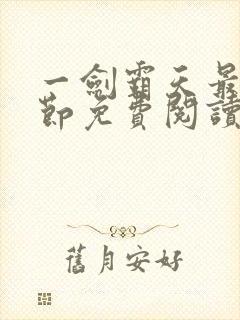 一劍霸天最
節免費閱讀
舊月安好